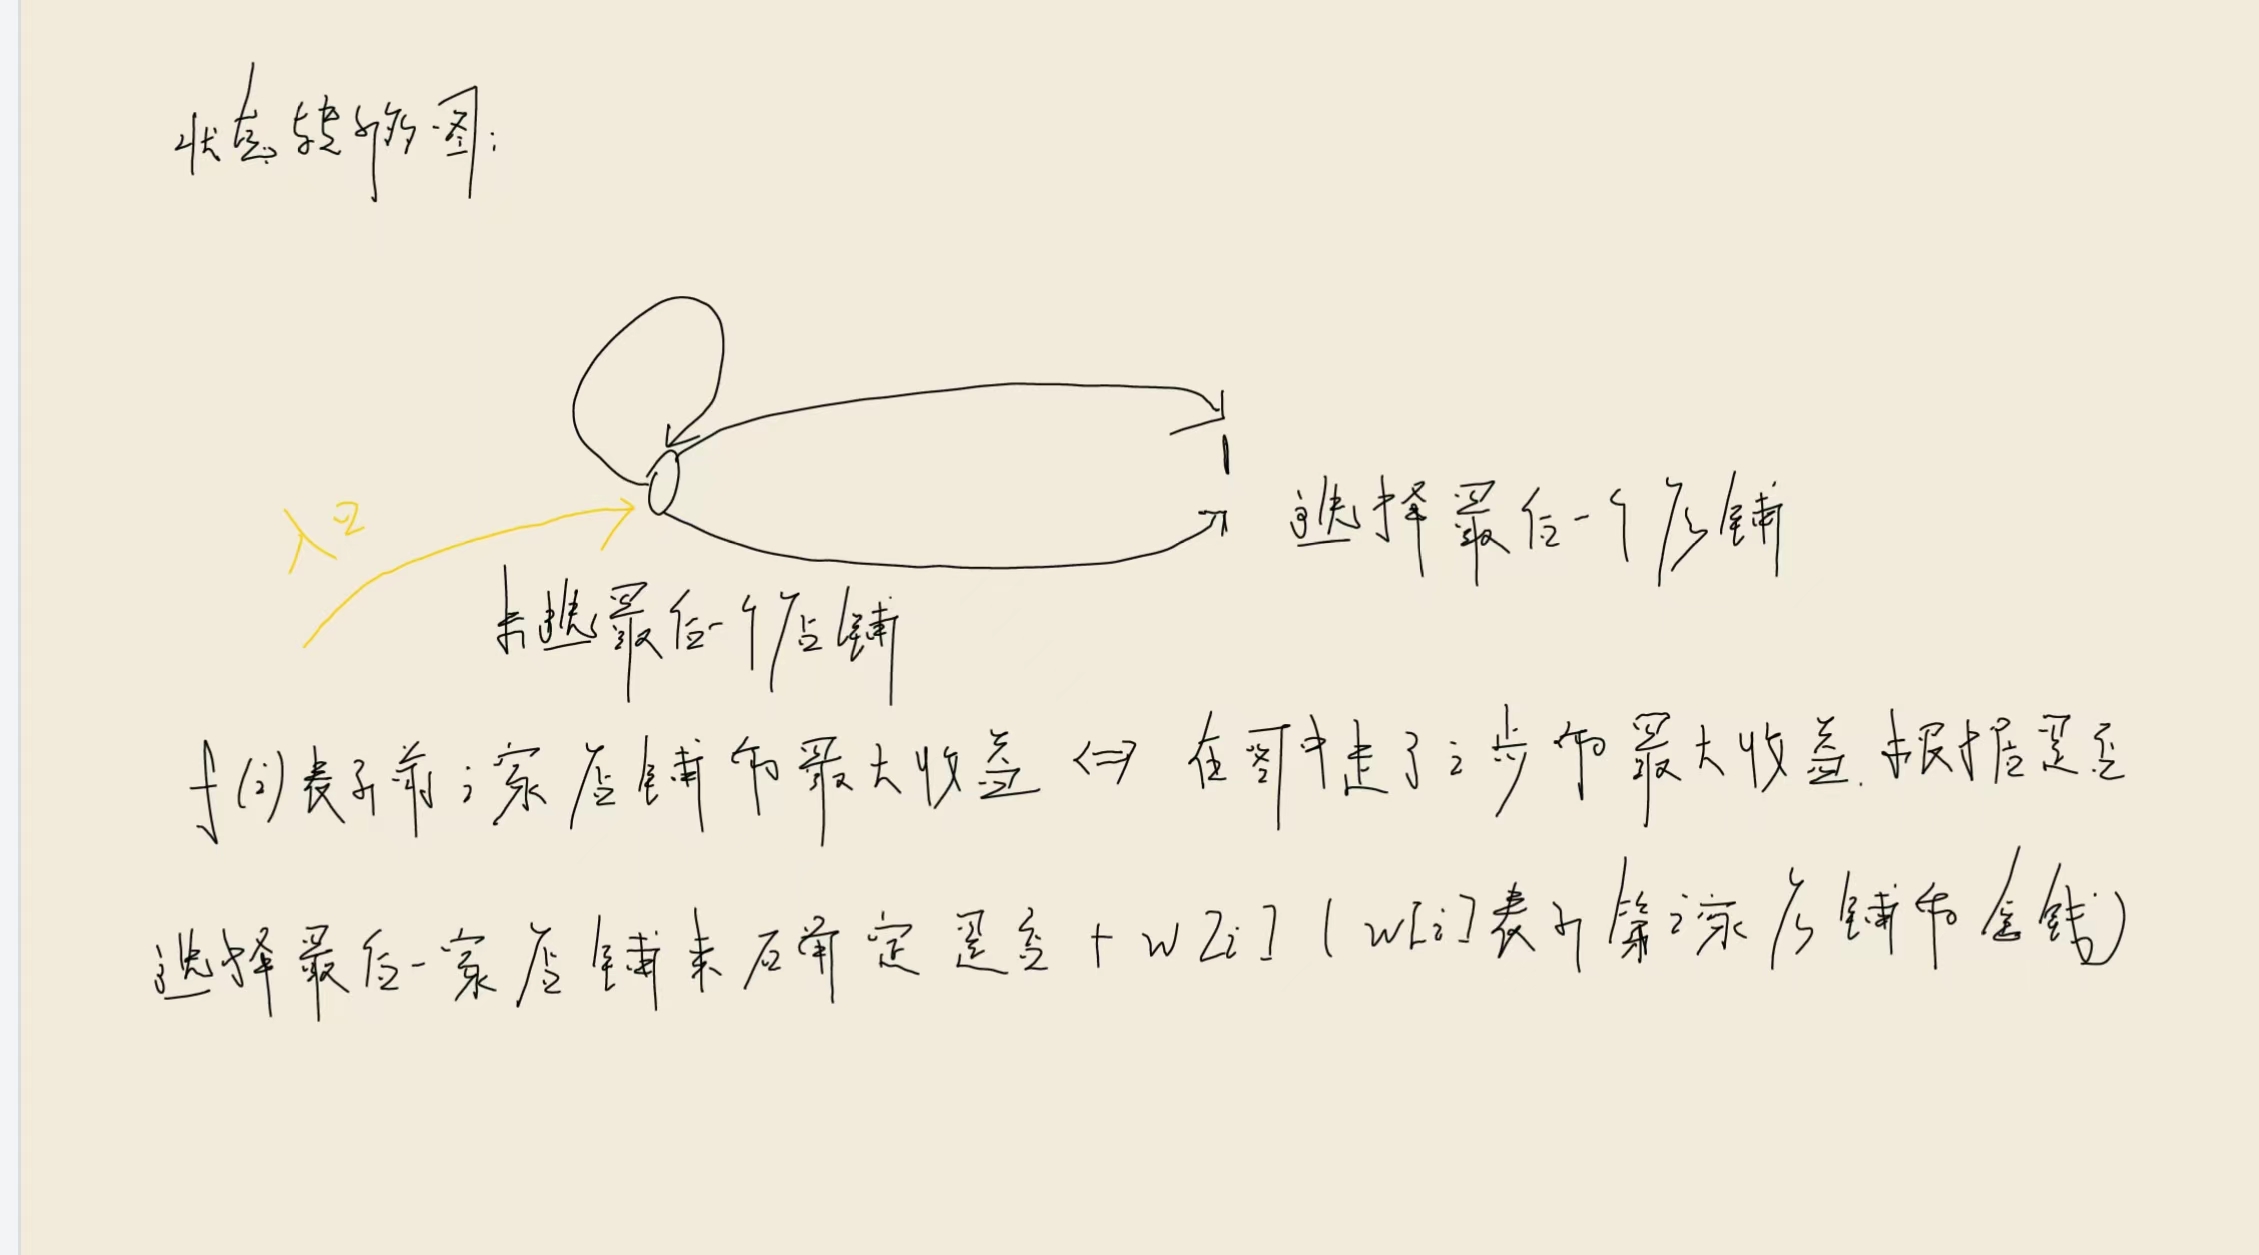 状态转移图:
入口
0
1
选择最后一个店铺
未选最后一个店铺
f(i)表示前i家店铺的最大收益 <=> 在图中走了i步的最大收益.根据是否
选择最后一家店铺来确定是否 + w[i] (w[i]表示第i家店铺的金钱)